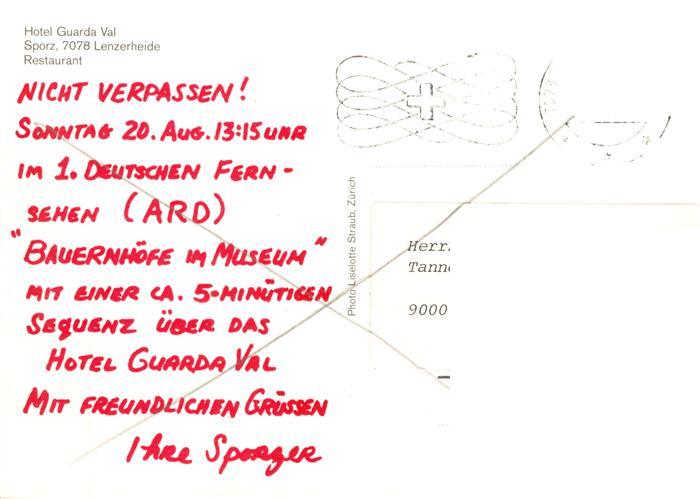 Hotel Guarda Val
Sporz, 7078 Lenzerheide
Restaurant
NICHT VERPASSEN!
SONNTAG 20. AUG. 13:15 UHR
IM 1. DEUTSCHEN FERN-
SEHEN (ARD)
"BAUERNHÖFE IM MUSEUM"
MIT EINER CA. 5-MINÜTIGEN
SEQUENZ ÜBER DAS
HOTEL GUARDA VAL
MIT FREUNDLICHEN GRÜSSEN
Ihre Sporzer
Photo Liselotte Straub, Zürich
Herr
Tann
9000